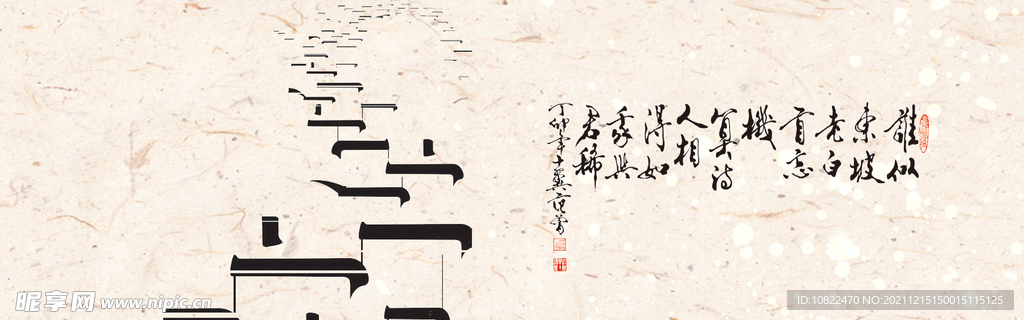 誰似
東坡
老白
首忘
機
算诗
人相
得如
我與
君稀
丁卯年十翼范曾
昵享网 www.nipic.cn
ID:10822470 NO:20211215150015115125